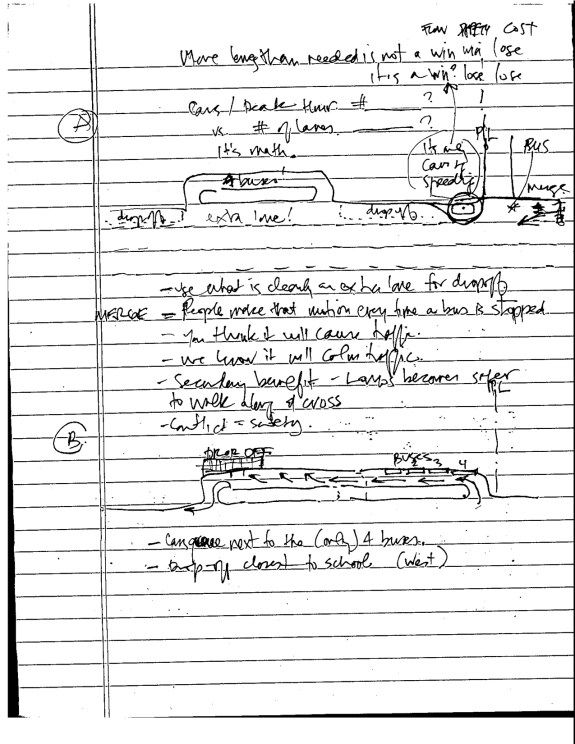 FLOW SAFETY COST
More long than needed is not a win win lose
it is a win? lose lose
Cars / Peak Hour # ?
A
vs. # of lanes ?
It's math.
PL
BUS
buses!
Cars
speeding
merge
drop-off extra lane! drop-off
- use what is clearly an extra lane for dropoff
MERGE = People make that motion every time a bus is stopped
- you think it will cause traffic.
- we know it will calm traffic.
- Secondary benefit - becomes safer
to walk along & cross
PL
- Conflict = safety.
B
DROP OFF
BUSES 2 3 4
- Cars queue next to the (only) 4 buses.
- Drop-off closest to school (West)